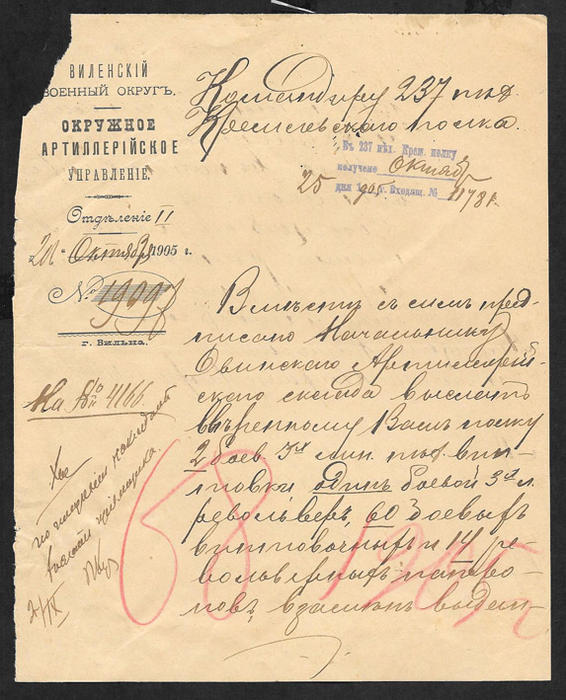 ВИЛЕНСКІЙ
ВОЕННЫЙ ОКРУГЪ.
ОКРУЖНОЕ
АРТИЛЛЕРІЙСКОЕ
УПРАВЛЕНІЕ.
Отдѣленіе II
Октября 1905 г.
№ 19997
г. Вильна.
На № 4166.
Командиру 237 пѣх.
Кремлевскаго полка.
Въ 237 пѣх. Крем. полку
получено Октября
25 дня 190 г. Входящ. № 11781
Вмѣстѣ с симъ пред-
писано Начальнику
Двинскаго Артиллерій-
скаго склада выслать
ввѣренному Вамъ полку
2 боев. 3х лин. пѣх. вин-
товки, одинъ боевой 3х л.
револьверъ, 60 боевыхъ
винтовочныхъ и 14 ре-
вольверныхъ патро-
новъ, взамѣнъ выдан-
68